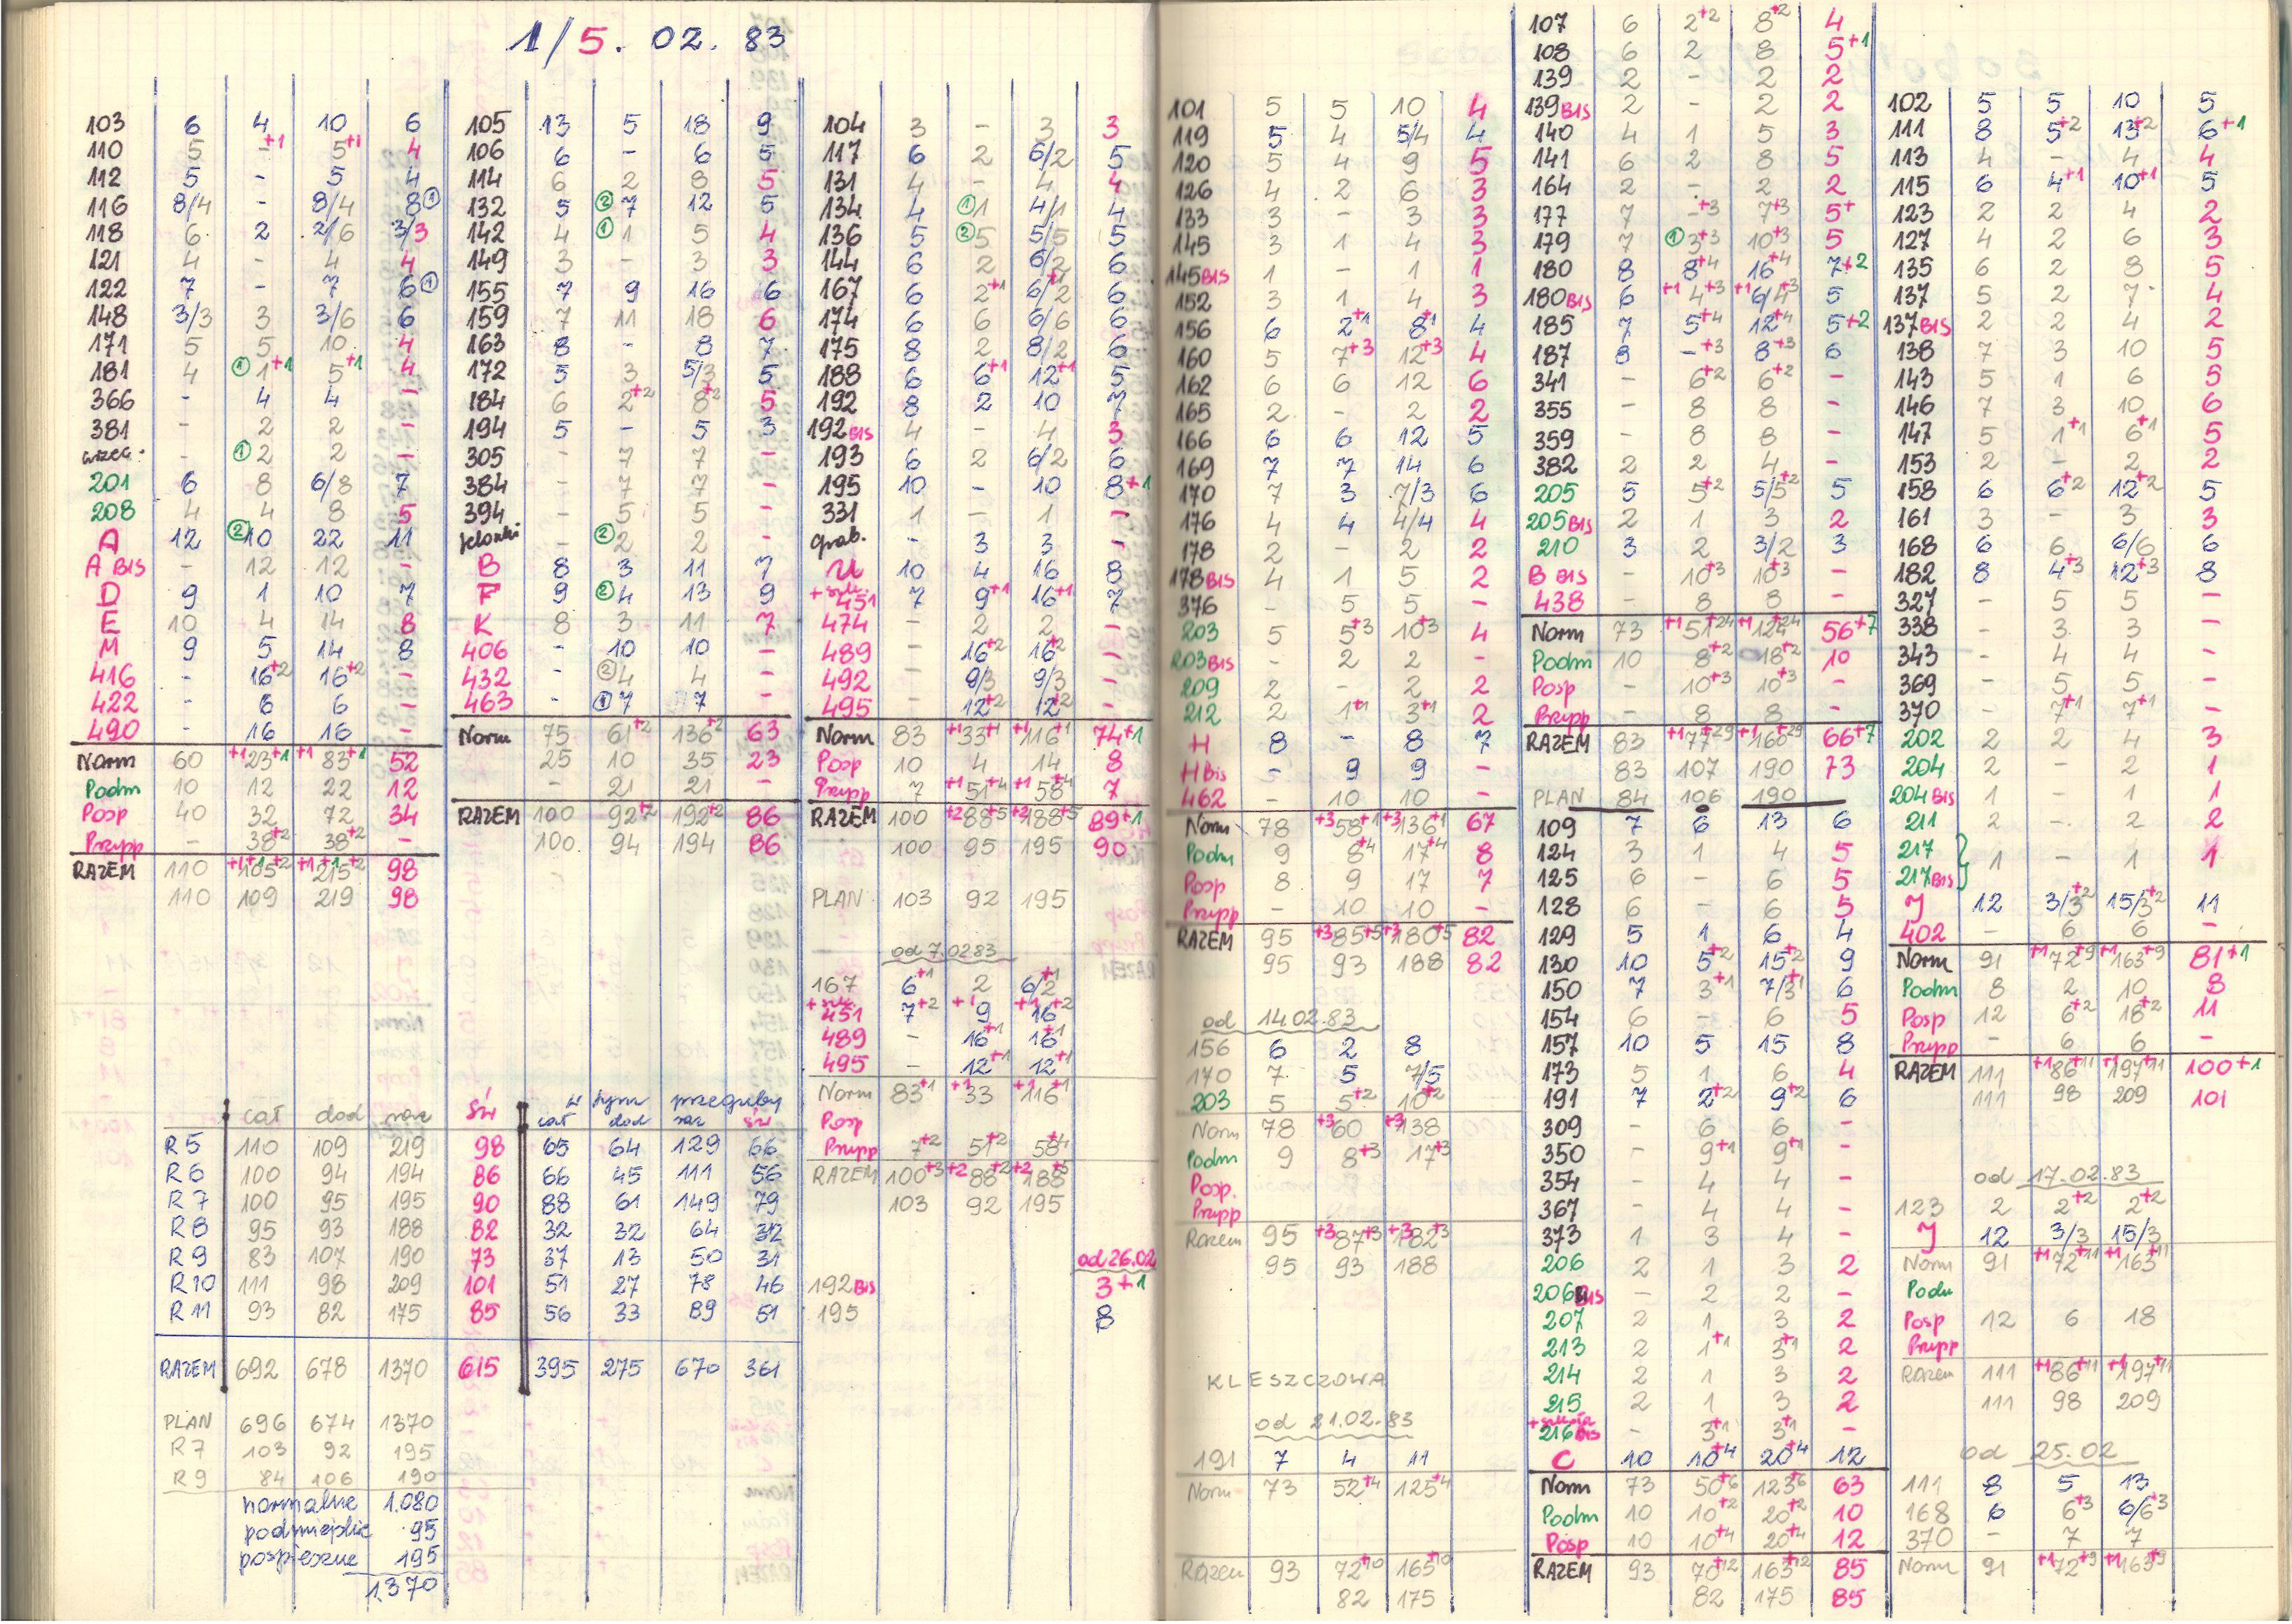 1/5. 02. 83
103 6 4 10 6
110 5 -+1 5+1 4
112 5 - 5 4
116 8/4 - 8/4 8①
118 6 2 2/6 3/3
121 4 - 4 4
122 7 - 7 6①
148 3/3 3 3/6 6
171 5 5 10 4
181 4 ①1+1 5+1 4
366 - 4 4 -
381 - 2 2 -
- ①2 2 -
201 6 8 6/8 7
208 4 4 8 5
A 12 ②10 22 11
A BIS - 12 12 -
D 9 1 10 7
E 10 4 14 8
M 9 5 14 8
416 - 16+2 16+2 -
422 - 6 6 -
490 - 16 16 -
Norm 60 +1 23+1 +1 83+1 52
Podm 10 12 22 12
Posp 40 32 72 34
Przysp - 38+2 38+2 -
RAZEM 110 +1+1 105+2 +1+1 215+2 98
110 109 219 98
105 13 5 18 9
106 6 - 6 5
114 6 2 8 5
132 5 ②7 12 5
142 4 ①1 5 4
149 3 - 3 3
155 7 9 16 6
159 7 11 18 6
163 8 - 8 7
172 5 3 5/3 5
184 6 2+2 8+2 5
194 5 - 5 3
305 - 7 7 -
384 - 7 7 -
394 - 5 5 -
Jelonki - ②2 2 -
B 8 3 11 7
F 9 ②4 13 9
K 8 3 11 7
406 - 10 10 -
432 - ②4 4 -
463 - ①7 7 -
Norm 75 61+2 136+2 63
25 10 35 23
- 21 21 -
RAZEM 100 92+2 192+2 86
100 94 194 86
104 3 - 3 3
117 6 2 6/2 5
131 4 - 4 4
134 4 ①1 4/1 4
136 5 ②5 5/5 5
144 6 2 6/2 6
167 6 2+1 6/2+1 6
174 6 6 6/6 6
175 8 2 8/2 6
188 6 6+1 12+1 5
192 8 2 10 7
192 BIS 4 - 4 3
193 6 2 6/2 6
195 10 - 10 8+1
331 1 - 1 -
grab. - 3 3 -
U 10 4 16 8
+szk. 451 7 9+1 16+1 7
474 - 2 2 -
489 - 16+2 16+2 -
492 - 9/3 9/3 -
495 - 12+2 12+2 -
Norm 83 +1 33+1 +1 116+1 74+1
Posp 10 4 14 8
Przysp 7 +1 51+4 +1 58+4 7
RAZEM 100 +2 88+5 +2 188+5 89+1
100 95 195 90
PLAN 103 92 195
od 7.02.83
167 6+1 2 6/2+1
+szk. 451 7+2 +1 9 +1 16+2
489 - 16+1 16+1
495 - 12+1 12+1
Norm 83+1 +1 33 +1 116+1
Posp
Przysp 7+2 51+2 58+4
RAZEM 100+3 +2 88+2 +2 188+5
103 92 195
od 26.02
192 BIS 3+1
195 8
cał dod raz św w tym przeguby cał dod raz św
R 5 110 109 219 98 65 64 129 66
R 6 100 94 194 86 66 45 111 56
R 7 100 95 195 90 88 61 149 79
R 8 95 93 188 82 32 32 64 32
R 9 83 107 190 73 37 13 50 31
R 10 111 98 209 101 51 27 78 46
R 11 93 82 175 85 56 33 89 51
RAZEM 692 678 1370 615 395 275 670 361
PLAN 696 674 1370
R 7 103 92 195
R 9 84 106 190
normalne 1.080
podmiejskie 95
pospieszne 195
1.370
101 5 5 10 4
119 5 4 5/4 4
120 5 4 9 5
126 4 2 6 3
133 3 - 3 3
145 3 1 4 3
145 BIS 1 - 1 1
152 3 1 4 3
156 6 2+1 8+1 4
160 5 7+3 12+3 4
162 6 6 12 6
165 2 - 2 2
166 6 6 12 5
169 7 7 14 6
170 7 3 7/3 6
176 4 4 4/4 4
178 2 - 2 2
178 BIS 4 1 5 2
376 - 5 5 -
203 5 5+3 10+3 4
203 BIS - 2 2 -
209 2 - 2 2
212 2 1+1 3+1 2
H 8 - 8 7
H Bis - 9 9 -
462 - 10 10 -
Norm 78 +3 58+1 +3 136+1 67
Podm 9 8+4 17+4 8
Posp 8 9 17 7
Przysp - 10 10 -
RAZEM 95 +3 85+5 +3 180+5 82
95 93 188 82
od 14.02.83
156 6 2 8
170 7 5 7/5
203 5 5+2 10+2
Norm 78 +3 60 +3 138
Podm 9 8+3 17+3
Posp.
Przysp
Razem 95 +3 87+3 +3 182+3
95 93 188
KLESZCZOWA
od 21.02.83
191 7 4 11
Norm 73 52+4 125+4
Razem 93 72+10 165+10
82 175
107 6 2+2 8+2 4
108 6 2 8 5+1
139 2 - 2 2
139 BIS 2 - 2 2
140 4 1 5 3
141 6 2 8 5
164 2 - 2 2
177 7 -+3 7+3 5+
179 7 ①3+3 10+3 5
180 8 8+4 16+4 7+2
180 BIS 6 +1 4+3 +1 6/4+3 5
185 7 5+4 12+4 5+2
187 8 -+3 8+3 6
341 - 6+2 6+2 -
355 - 8 8 -
359 - 8 8 -
382 2 2 4 -
205 5 5+2 5/5+2 5
205 BIS 2 1 3 2
210 3 2 3/2 3
B BIS - 10+3 10+3 -
438 - 8 8 -
Norm 73 +1 51+24 +1 124+24 56+7
Podm 10 8+2 18+2 10
Posp - 10+3 10+3 -
Przysp - 8 8 -
RAZEM 83 +1 77+29 +1 160+29 66+7
83 107 190 73
PLAN 84 106 190
109 7 6 13 6
124 3 1 4 5
125 6 - 6 5
128 6 - 6 5
129 5 1 6 4
130 10 5+2 15+2 9
150 7 3+1 7/3+1 6
154 6 - 6 5
157 10 5 15 8
173 5 1 6 4
191 7 2+2 9+2 6
309 - 6 6 -
350 - 9+1 9+1 -
354 - 4 4 -
367 - 4 4 -
373 1 3 4 -
206 2 1 3 2
206 BIS - 2 2 -
207 2 1 3 2
213 2 1+1 3+1 2
214 2 1 3 2
215 2 1 3 2
216 BIS - 3+1 3+1 -
C 10 10+4 20+4 12
Norm 73 50+6 123+6 63
Podm 10 10+2 20+2 10
Posp 10 10+4 20+4 12
RAZEM 93 70+12 163+12 85
82 175 85
102 5 5 10 5
111 8 5+2 13+2 6+1
113 4 - 4 4
115 6 4+1 10+1 5
123 2 2 4 2
127 4 2 6 3
135 6 2 8 5
137 5 2 7 4
137 BIS 2 2 4 2
138 7 3 10 5
143 5 1 6 5
146 7 3 10 6
147 5 1+1 6+1 5
153 2 - 2 2
158 6 6+2 12+2 5
161 3 - 3 3
168 6 6 6/6 6
182 8 4+3 12+3 8
327 - 5 5 -
338 - 3 3 -
343 - 4 4 -
369 - 5 5 -
370 - 7+1 7+1 -
202 2 2 4 3
204 2 - 2 1
204 BIS 1 - 1 1
211 2 - 2 2
217 217 BIS } 1 - 1 1
J 12 3/3+2 15/3+2 11
402 - 6 6 -
Norm 91 +1 72+9 +1 163+9 81+1
Podm 8 2 10 8
Posp 12 6+2 18+2 11
Przysp - 6 6 -
RAZEM 111 +1 86+11 +1 197+11 100+1
111 98 209 101
od 17.02.83
123 2 2+2 2+2
J 12 3/3 15/3
Norm 91 +1 72+11 +1 163+11
Podm
Posp 12 6 18
Przysp
Razem 111 +1 86+11 +1 197+11
111 98 209
od 25.02
111 8 5 13
168 6 6+3 6/6+3
370 - 7 7
Norm 91 +1 72+9 +1 163+9